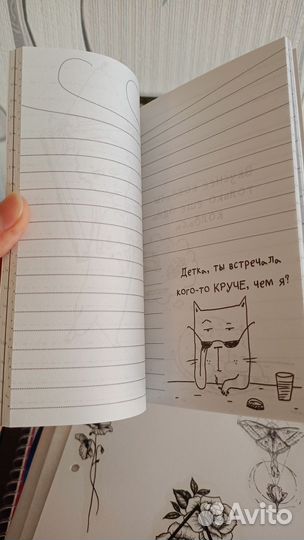 Детка, ты встречала
кого-то КРУЧЕ, чем я?
Avito